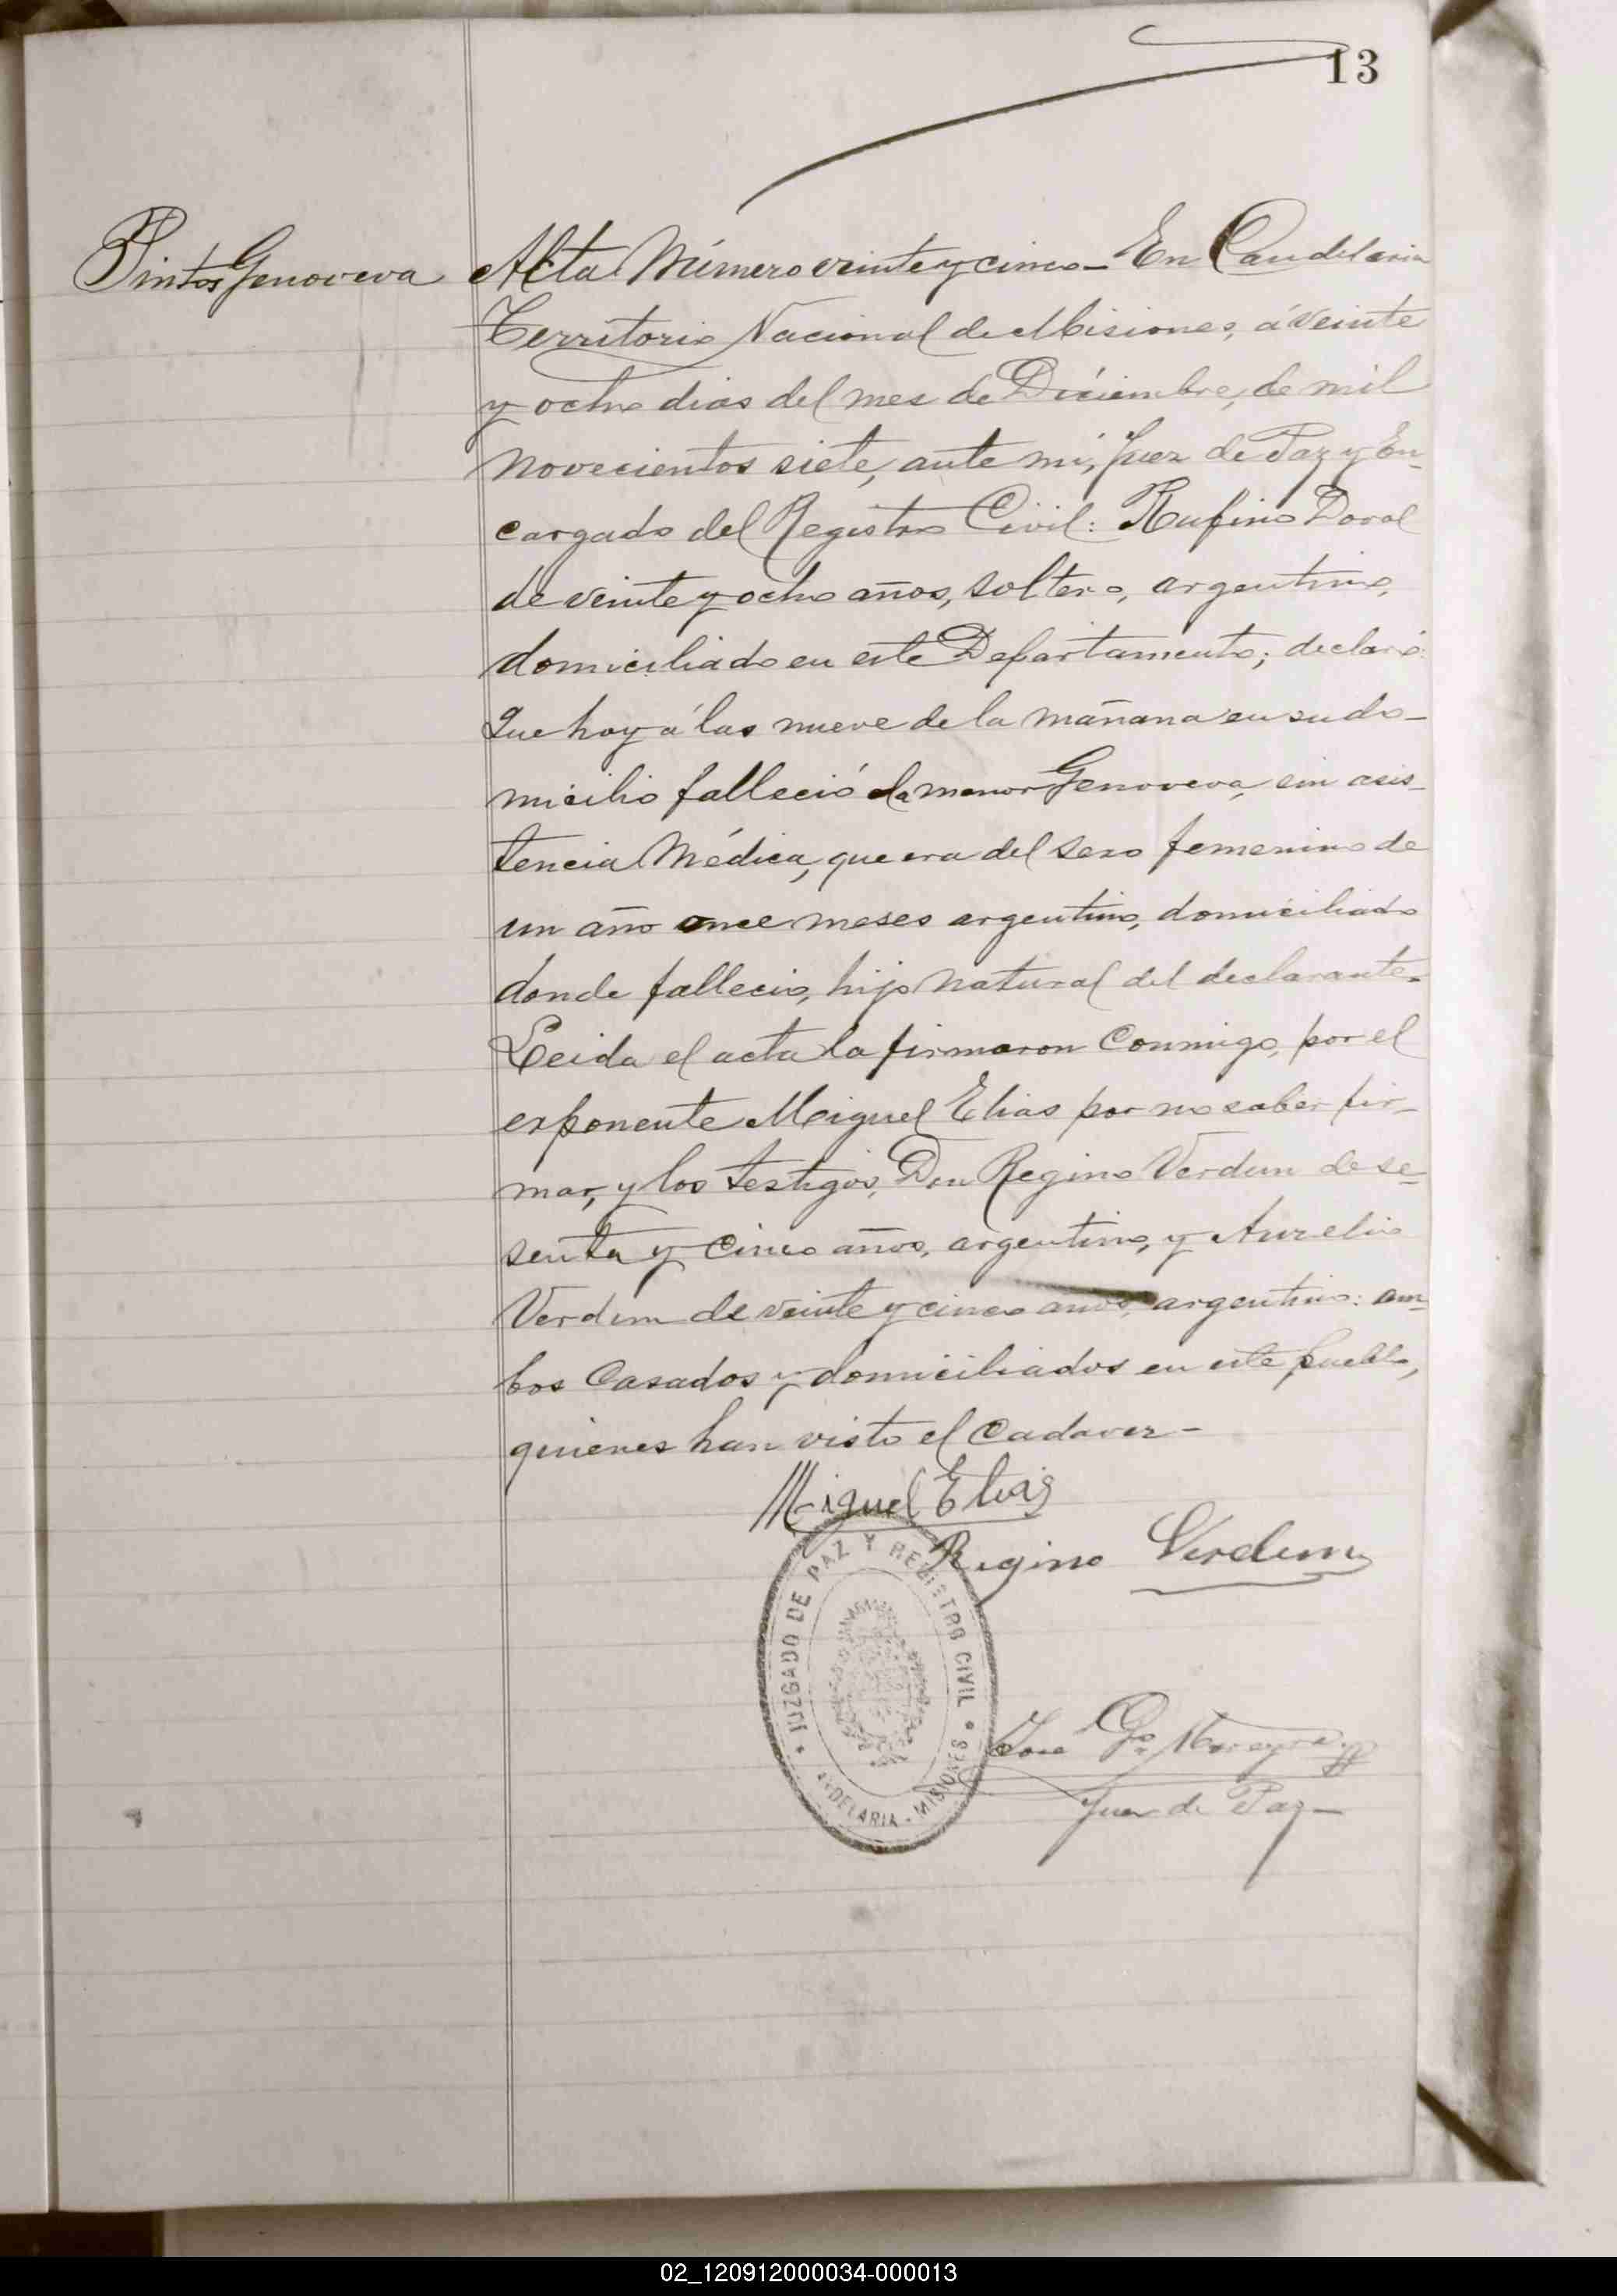 13
Pintos Genoveva
Acta Número veinte y cinco - En Candelaria
Territorio Nacional de Misiones, á veinte
y ocho dias del mes de Diciembre, de mil
novecientos siete, ante mi, Juez de Paz y En-
cargado del Registro Civil: Rufino Doval
de veinte y ocho años, soltero, argentino,
domiciliado en este Departamento; declaró:
Que hoy á las nueve de la mañana en su do-
micilio falleció la menor Genoveva, sin asis-
tencia Médica, que era del sexo femenino de
un año once meses argentino, domiciliado
donde fallecio, hijo natural del declarante.
Leida el acta la firmaron conmigo, por el
exponente Miguel Elias por no saber fir-
mar, y los testigos, Don Regino Verdun de se-
senta y cinco años, argentino, y Aurelio
Verdun de veinte y cinco años, argentino: am-
bos casados y domiciliados en este pueblo,
quienes han visto el cadaver -
Miguel Elias
Regino Verdun
JUZGADO DE PAZ Y REGISTRO CIVIL
NDELARIA - MISIONES
José Gº Moreyra
Juez de Paz -
02_120912000034-000013